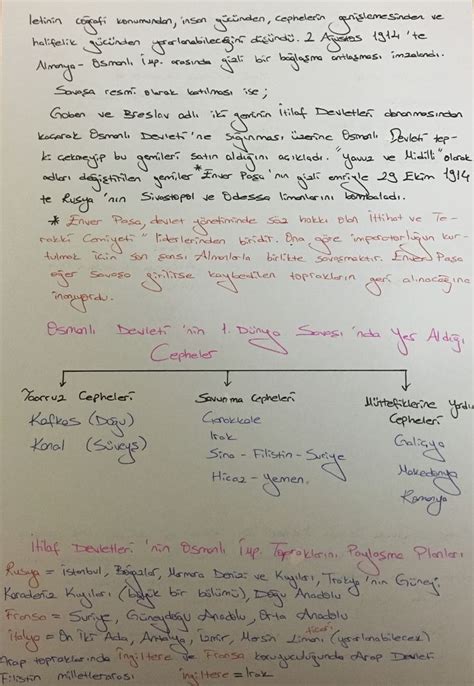 letinin coğrafi konumundan, insan gücünden, cephelerin genişlemesinden ve
halifelik gücünden yararlanabileceğini düşündü. 2 Ağustos 1914'te
Almanya - Osmanlı İmp. arasında gizli bir bağlaşma antlaşması imzalandı.
Savaşa resmi olarak katılması ise;
Goben ve Breslav adlı iki geminin İtilaf Devletleri donanmasından
kaçarak Osmanlı Devleti'ne sığınması üzerine Osmanlı Devleti tep-
ki çekmeyip bu gemileri satın aldığını açıkladı. "Yavuz ve Midilli" olarak
adları değiştirilen gemiler *Enver Paşa'nın gizli emriyle 29 Ekim 1914
te Rusya'nın Sivastopol ve Odessa limanlarını bombaladı.
* Enver Paşa, devlet yönetiminde söz hakkı olan İttihat ve Te-
rakki Cemiyeti" liderlerinden biridir. Ona göre imparatorluğun kur-
tulmak için son şansı Almanlarla birlikte savaşmaktır. Enver Paşa
eğer savaşa girilirse kaybedilen toprakların geri alınacağına
inanıyordu.
Osmanlı Devleti'nin 1. Dünya Savaşı'nda Yer Aldığı
Cepheler
Taarruz Cepheleri
Kafkas (Doğu)
Kanal (Süveyş)
Savunma Cepheleri
Çanakkale
Irak
Sina - Filistin - Suriye
Hicaz - Yemen.
Müttefiklerine Yardım
Cepheleri
Galiçya
Makedonya
Romanya
İtilaf Devletleri'nin Osmanlı İmp. Topraklarını Paylaşma Planları
Rusya = İstanbul, Boğazlar, Marmara Denizi ve Kıyıları, Trakya'nın Güney
Karadeniz Kıyıları (büyük bir bölümü), Doğu Anadolu
Fransa = Suriye, Güneydoğu Anadolu, Orta Anadolu
İtalya = On İki Ada, Antalya, İzmir, Mersin ticari Limanı (yararlanabilecek)
Arap topraklarında İngiltere ve Fransa koruyuculuğunda Arap Devleti
Filistin milletlerarası İngiltere = Irak